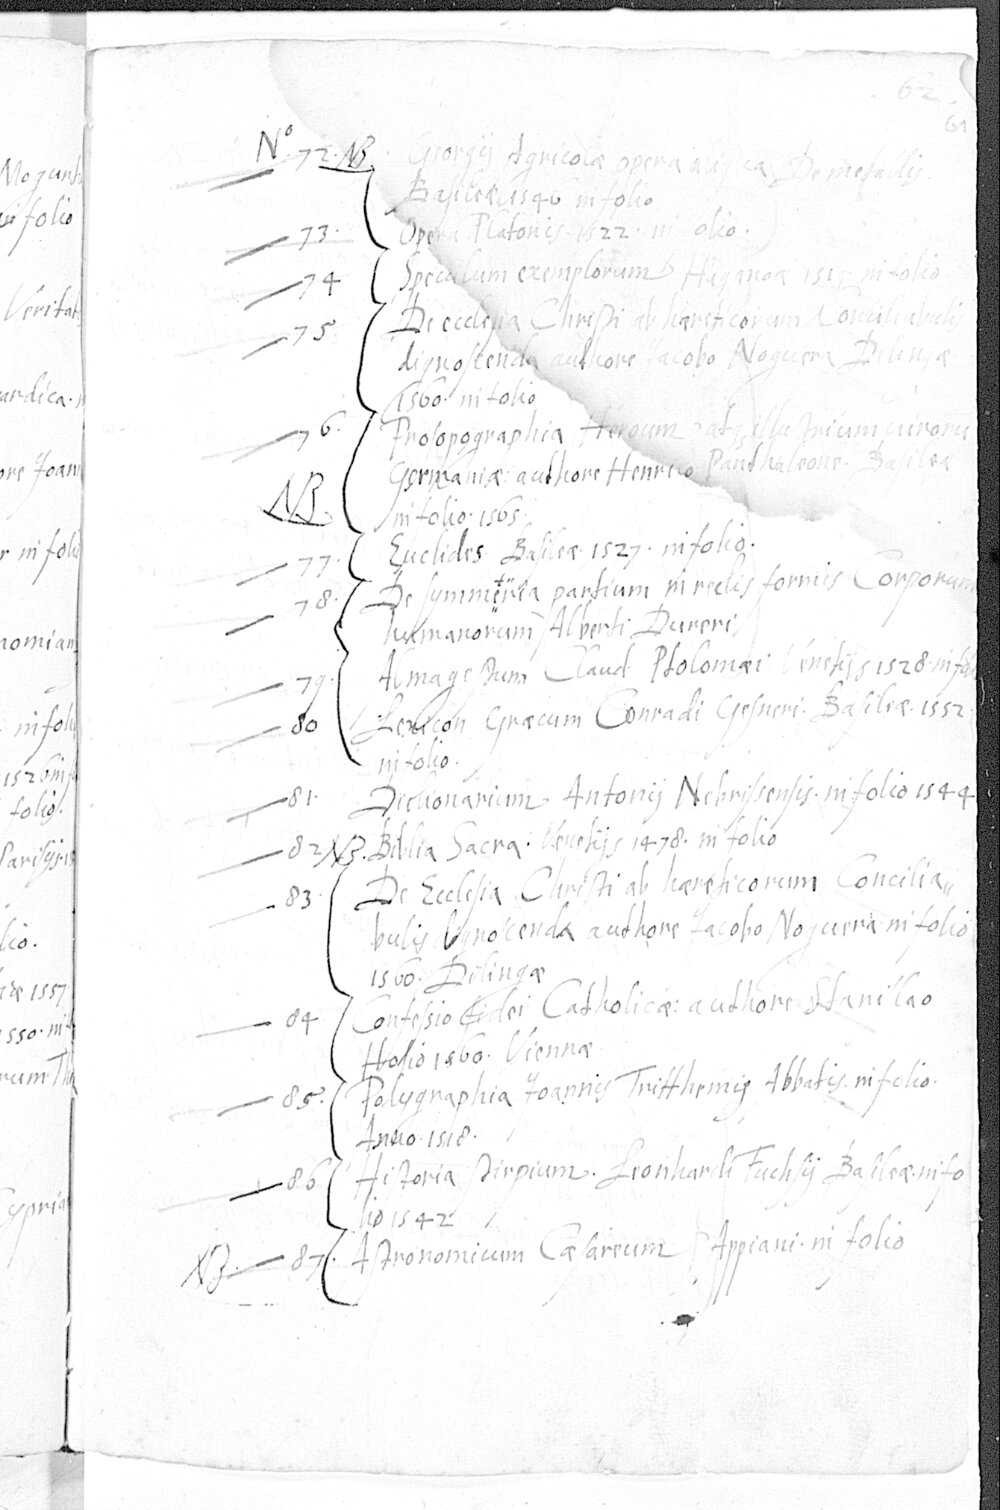 62
61
Nº 72. NB. Georgij Agricolæ opera De metallis.
Basileæ 1546 in folio
73. Opera Platonis. 1522. in folio.
74 Speculum exemplorum Haganoæ in folio
75 De ecclesia Christi ab hæreticorum Conciliabulis
dignoscenda authore Jacobo Noguera Delingæ
1560. in folio
76. Prosopographia Heroum atq illustrium virorum
Germaniæ: authore Henrico Panthaleone. Basileæ
NB in folio. 1565.
77. Euclides Basileæ. 1527. in folio.
78. De symmetria partium in rectis formis Corporum
humanorum Alberti Dureri
79. Almagestum Claud. Ptolomæi Venetijs 1528. in fo
80 Lexicon Græcum Conradi Gesneri. Basileæ. 1552.
in folio.
81. Dictionarium Antonij Nebrissensis. in folio 1544
82 NB. Biblia Sacra. Venetijs 1478. in folio
83. De Ecclesia Christi ab hæreticorum Concilia„
bulis authore Jacobo Noguera in folio
1560. Delingæ
84 Confessio fidei Catholicæ: authore Stanislao
Hosio 1560. Viennæ
85. Polygraphia Joannis Tritthemij Abbatis. in folio.
Anno. 1518.
86 Historia stirpium. Leonhardi Fuchsij Basileæ. in fo
lio 1542
NB. 87. Astronomicum Cæsareum P. Appiani. in folio